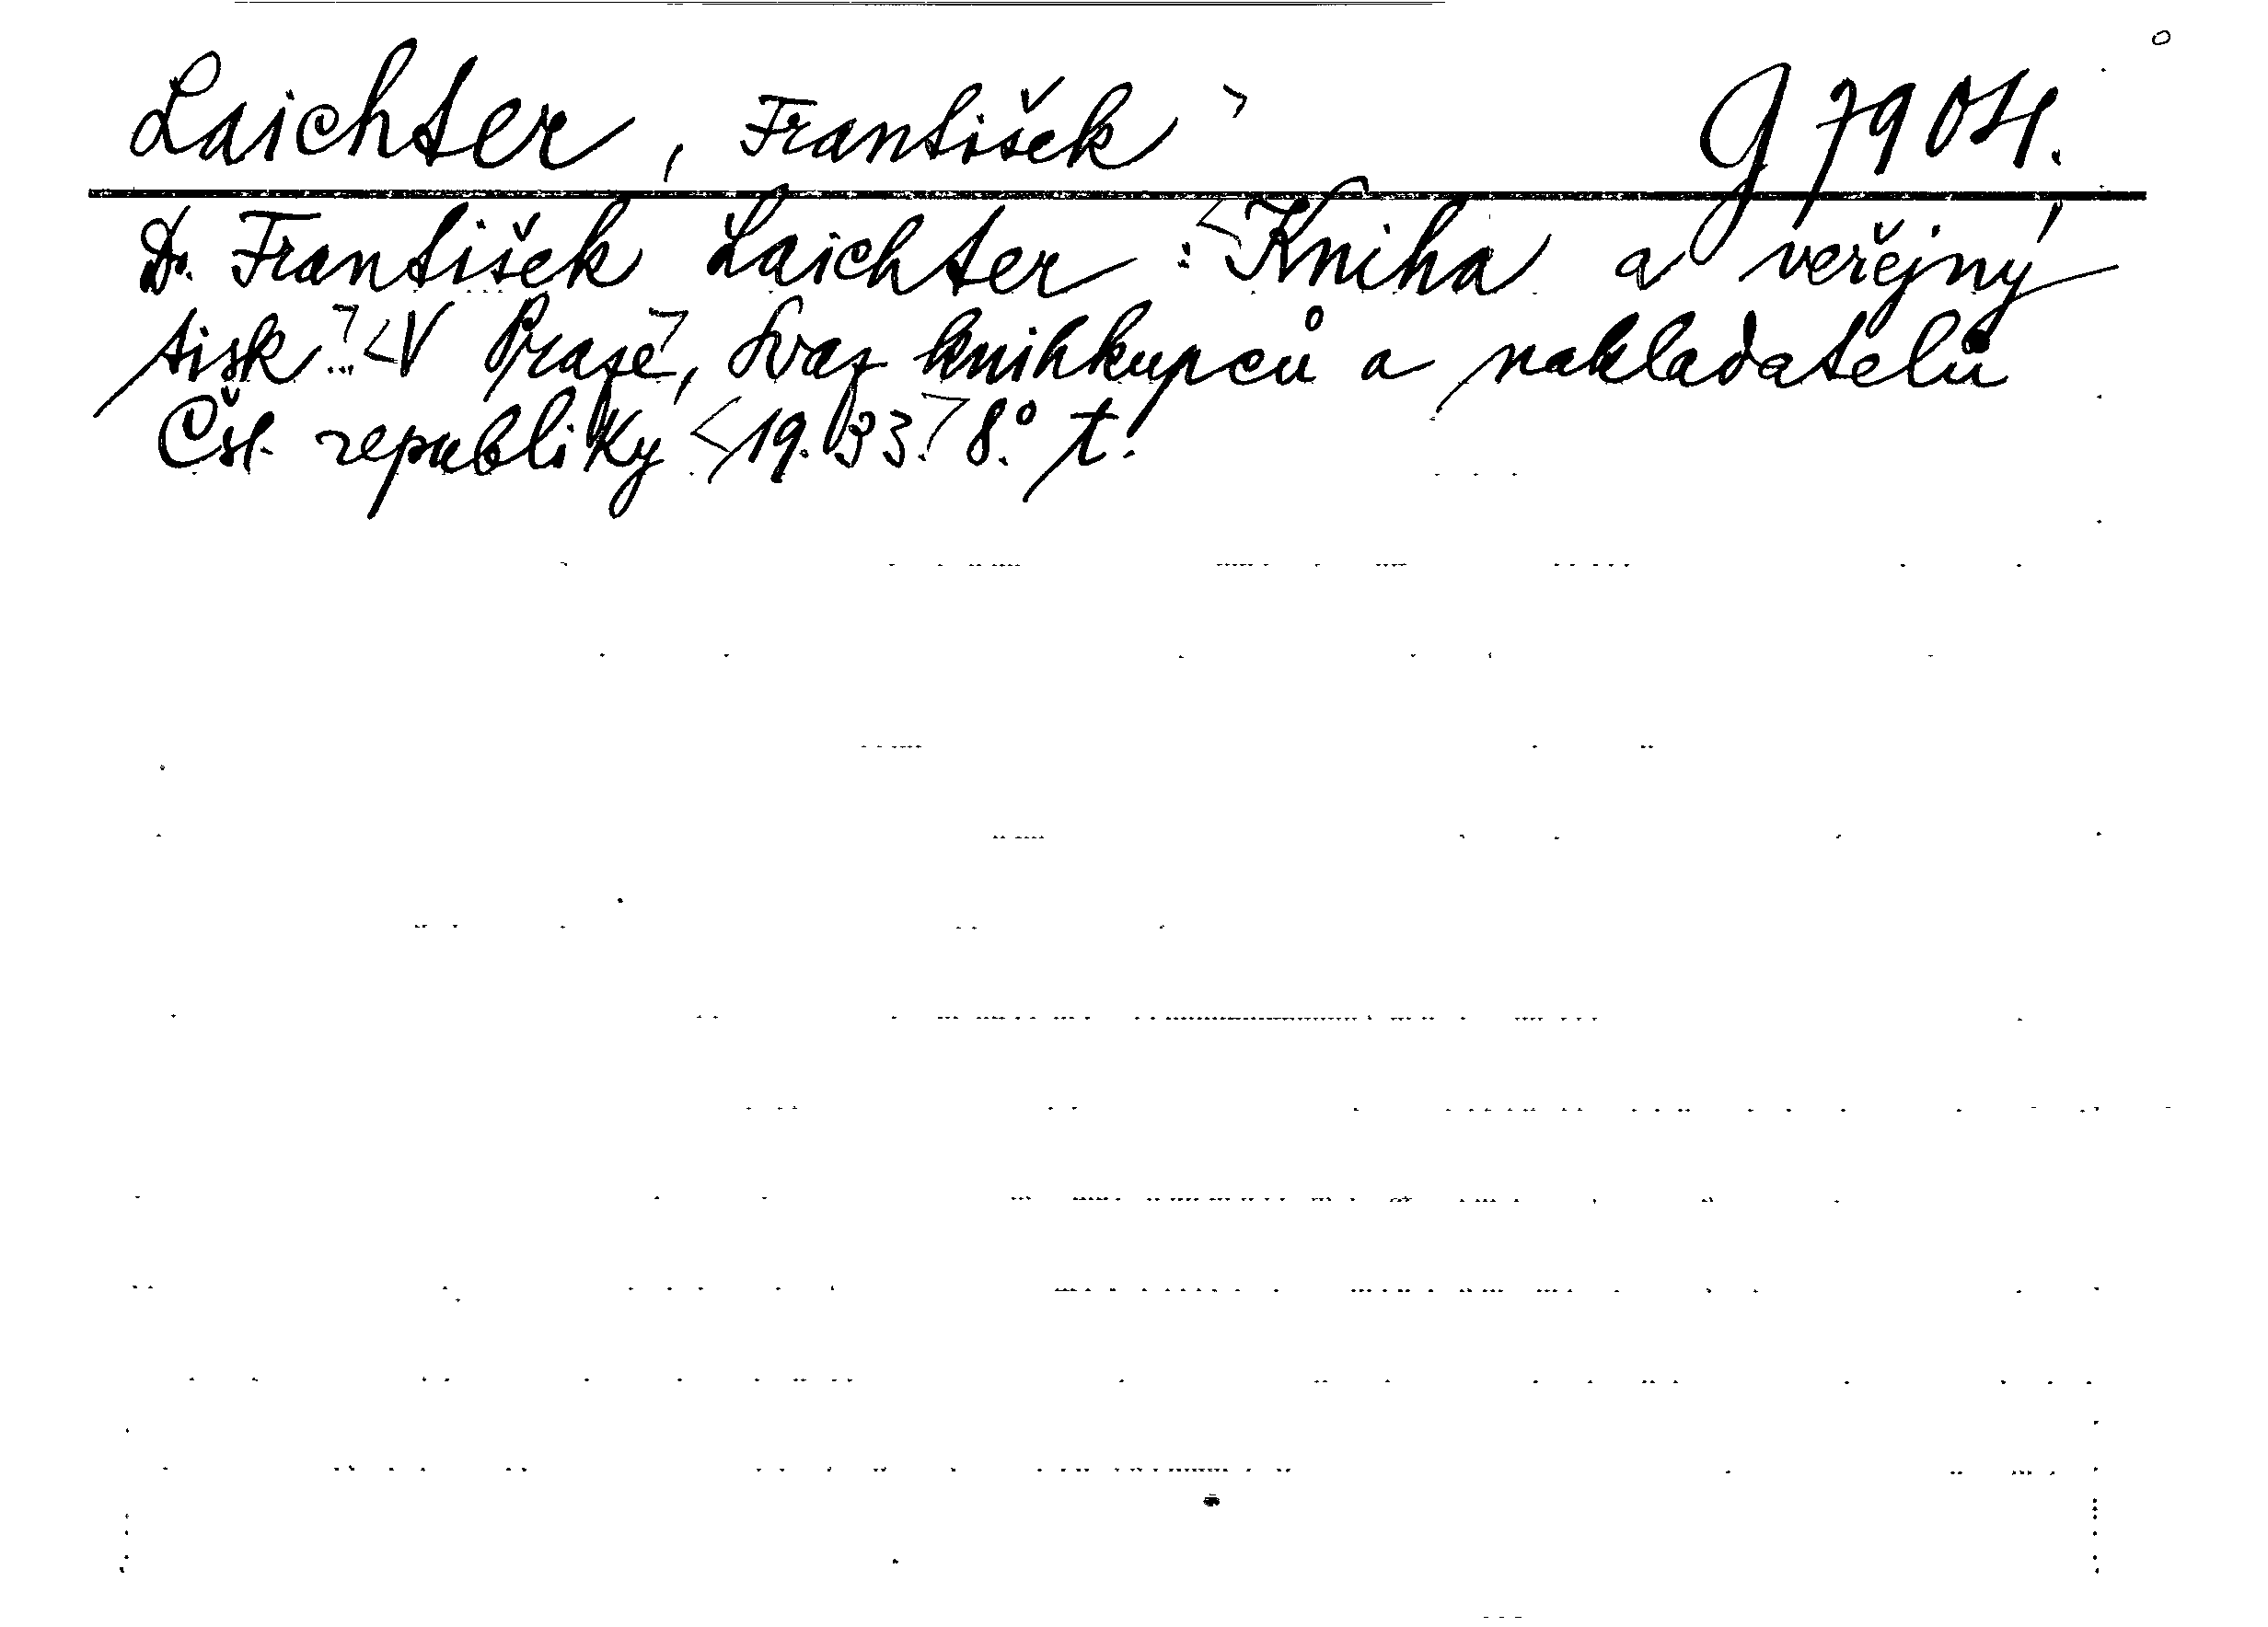 Laichter, František > g 7904.
Dr. František Laichter : <Kniha a veřejný
tisk.> <V Praze>, Svaz knihkupců a nakladatelů
Čsl. republiky <19.33.> 8.° t.